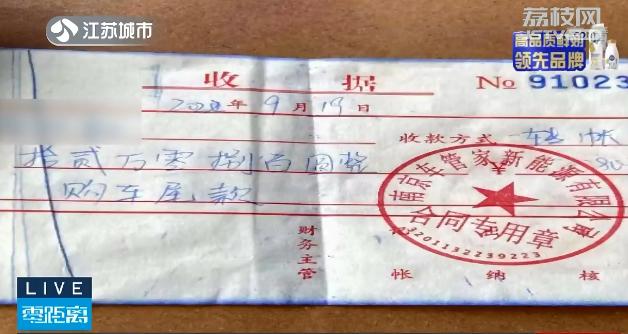 江苏城市
荔枝网
高品质鲜奶
领先品牌
收据
No 91023
2020年9月19日
收款方式 转帐
拾贰万零捌百圆整
购车尾款
南京车管家新能源有限公司
合同专用章
3201132239223
财务主管
帐 纳 核
LIVE
零距离